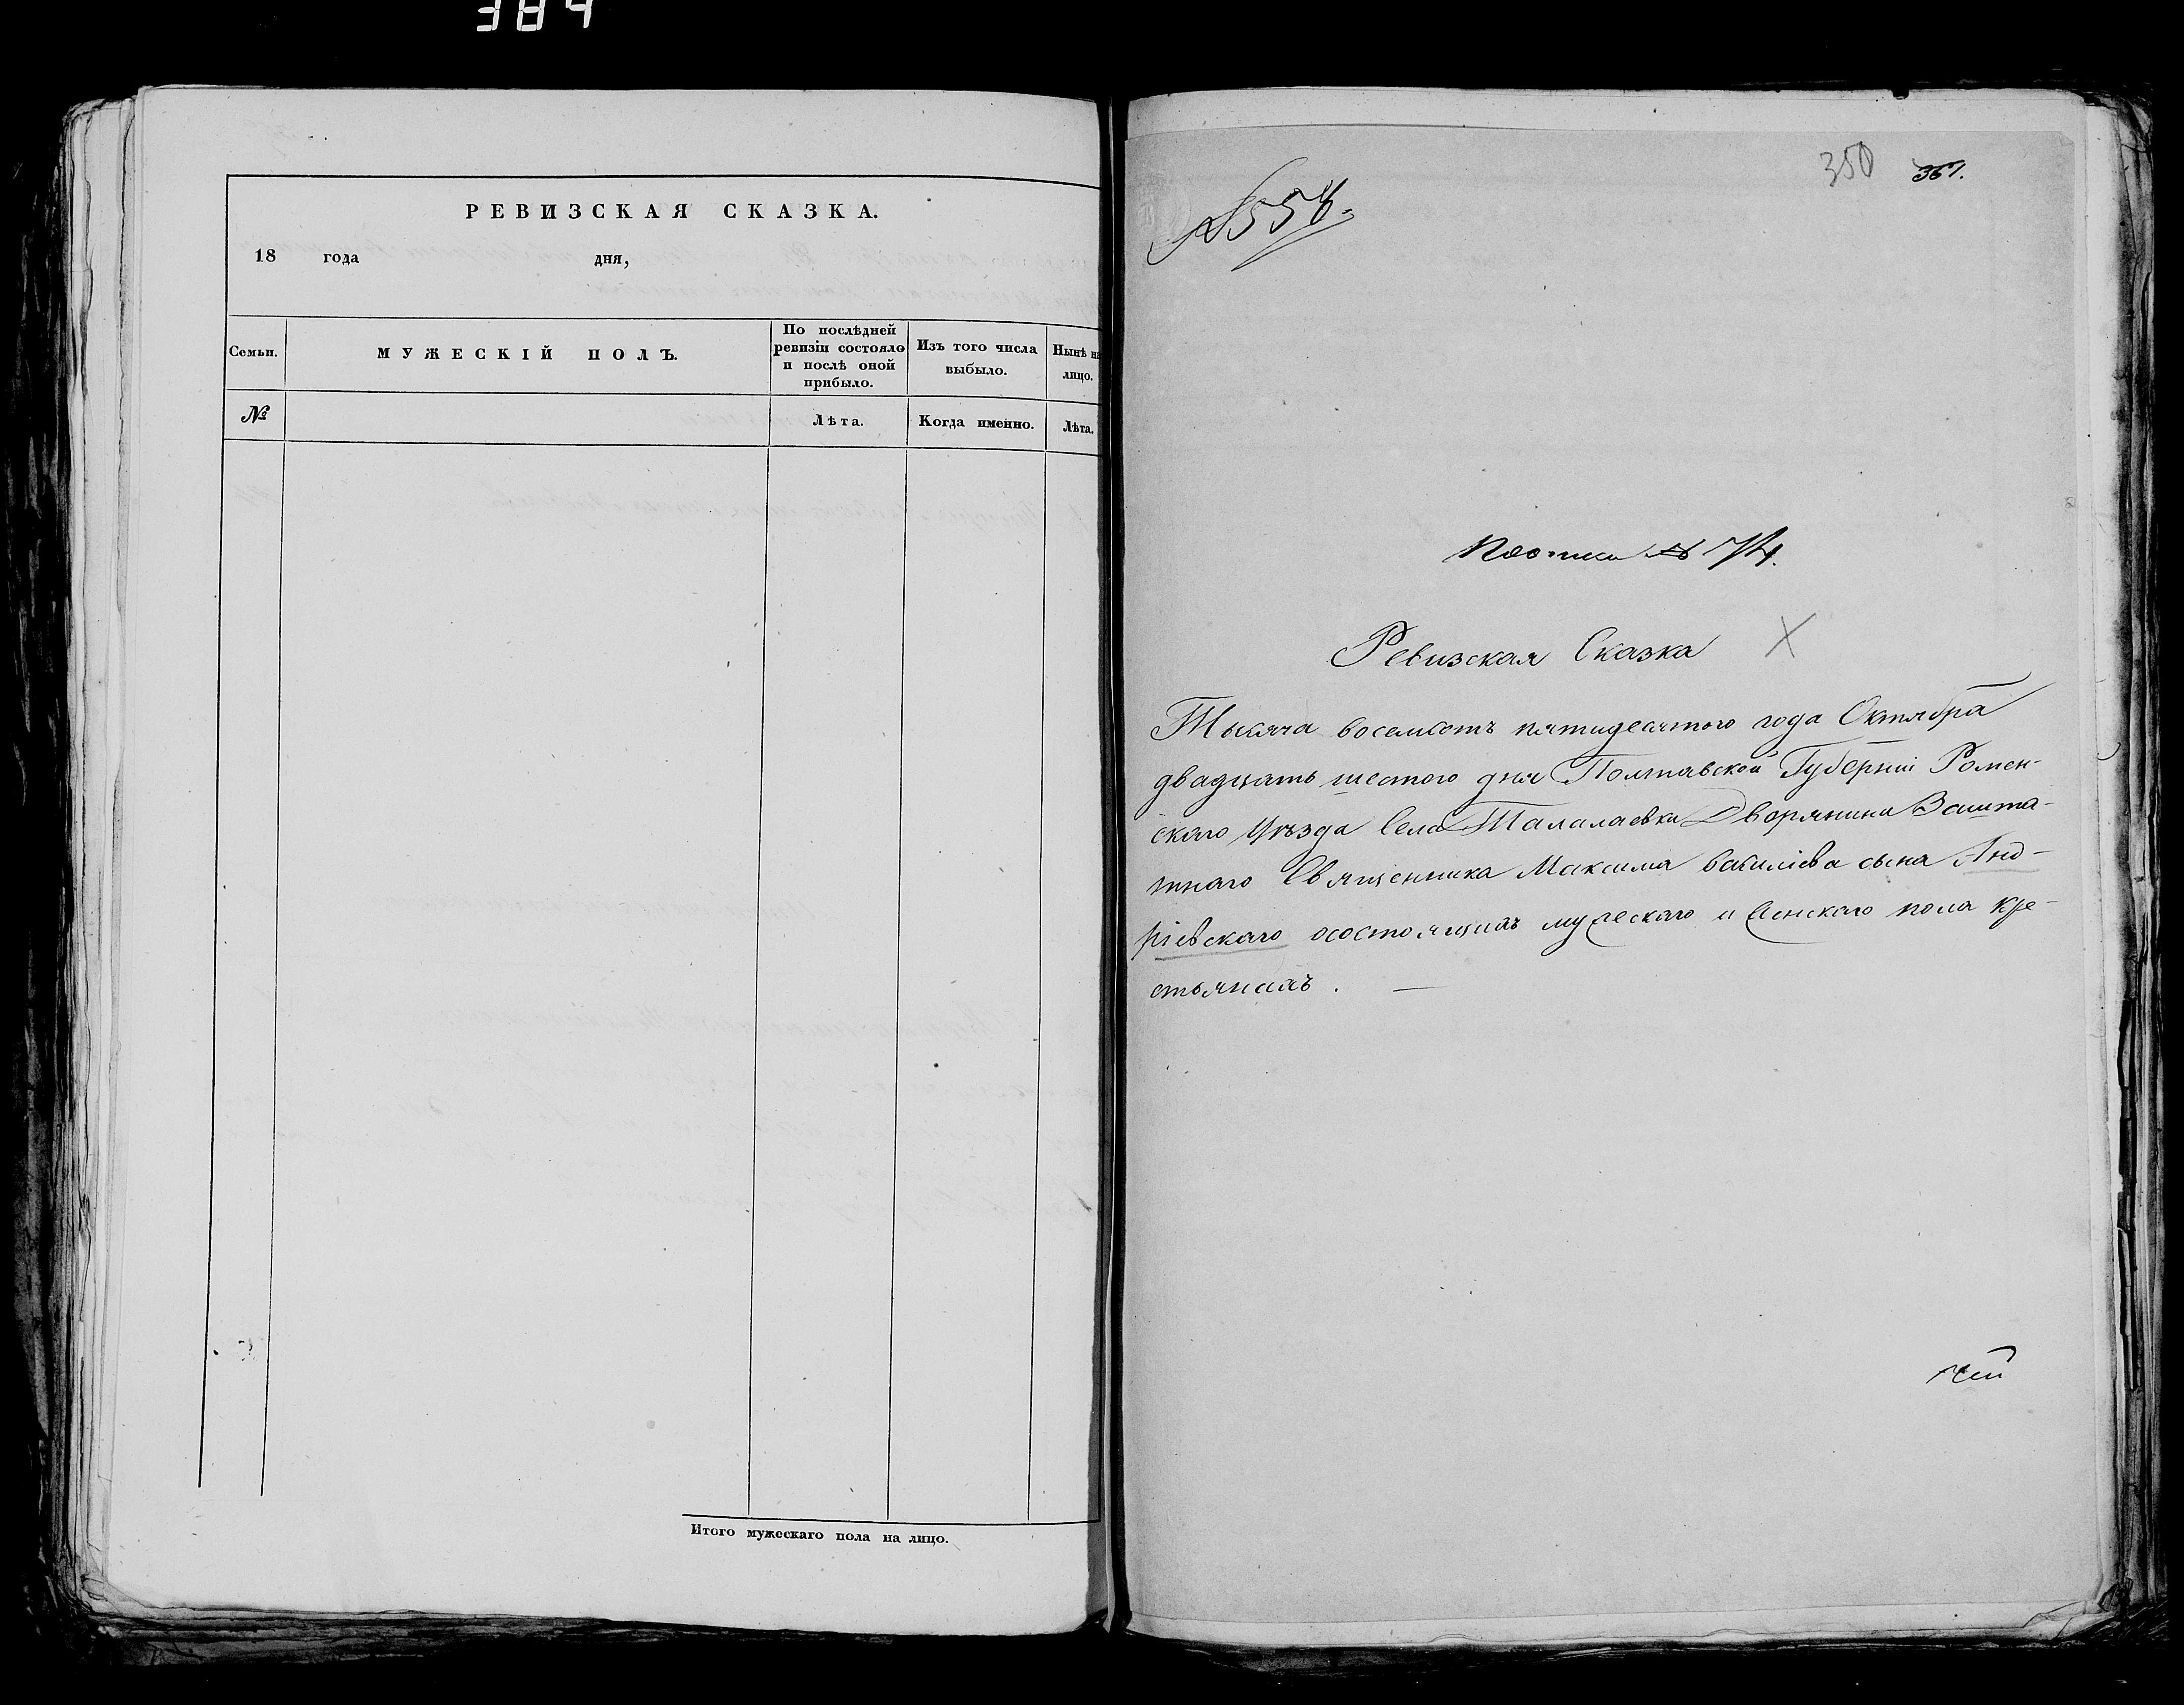 384
РЕВИЗСКАЯ СКАЗКА.
18 года дня,
Семьи.
МУЖЕСКІЙ ПОЛЪ.
По послѣдней ревизіи состояло и послѣ оной прибыло.
Изъ того числа выбыло.
Нынѣ на лицо.
№
Лѣта.
Когда именно.
Лѣта.
Итого мужескаго пола на лицо.
350 361.
№ 558.
№ 74.
Ревизская Сказка
Тысяча восемсотъ пятидесятого года Октября
двадцать шестого дня Полтавской Губерніи Ромен-
скаго Уѣзда Села Талалаевки Дворянина Зашта-
тнаго Священника Максима Василіева сына Анд-
ріевскаго осостоящихъ мужескаго и женскаго пола кре-
стьянахъ. —